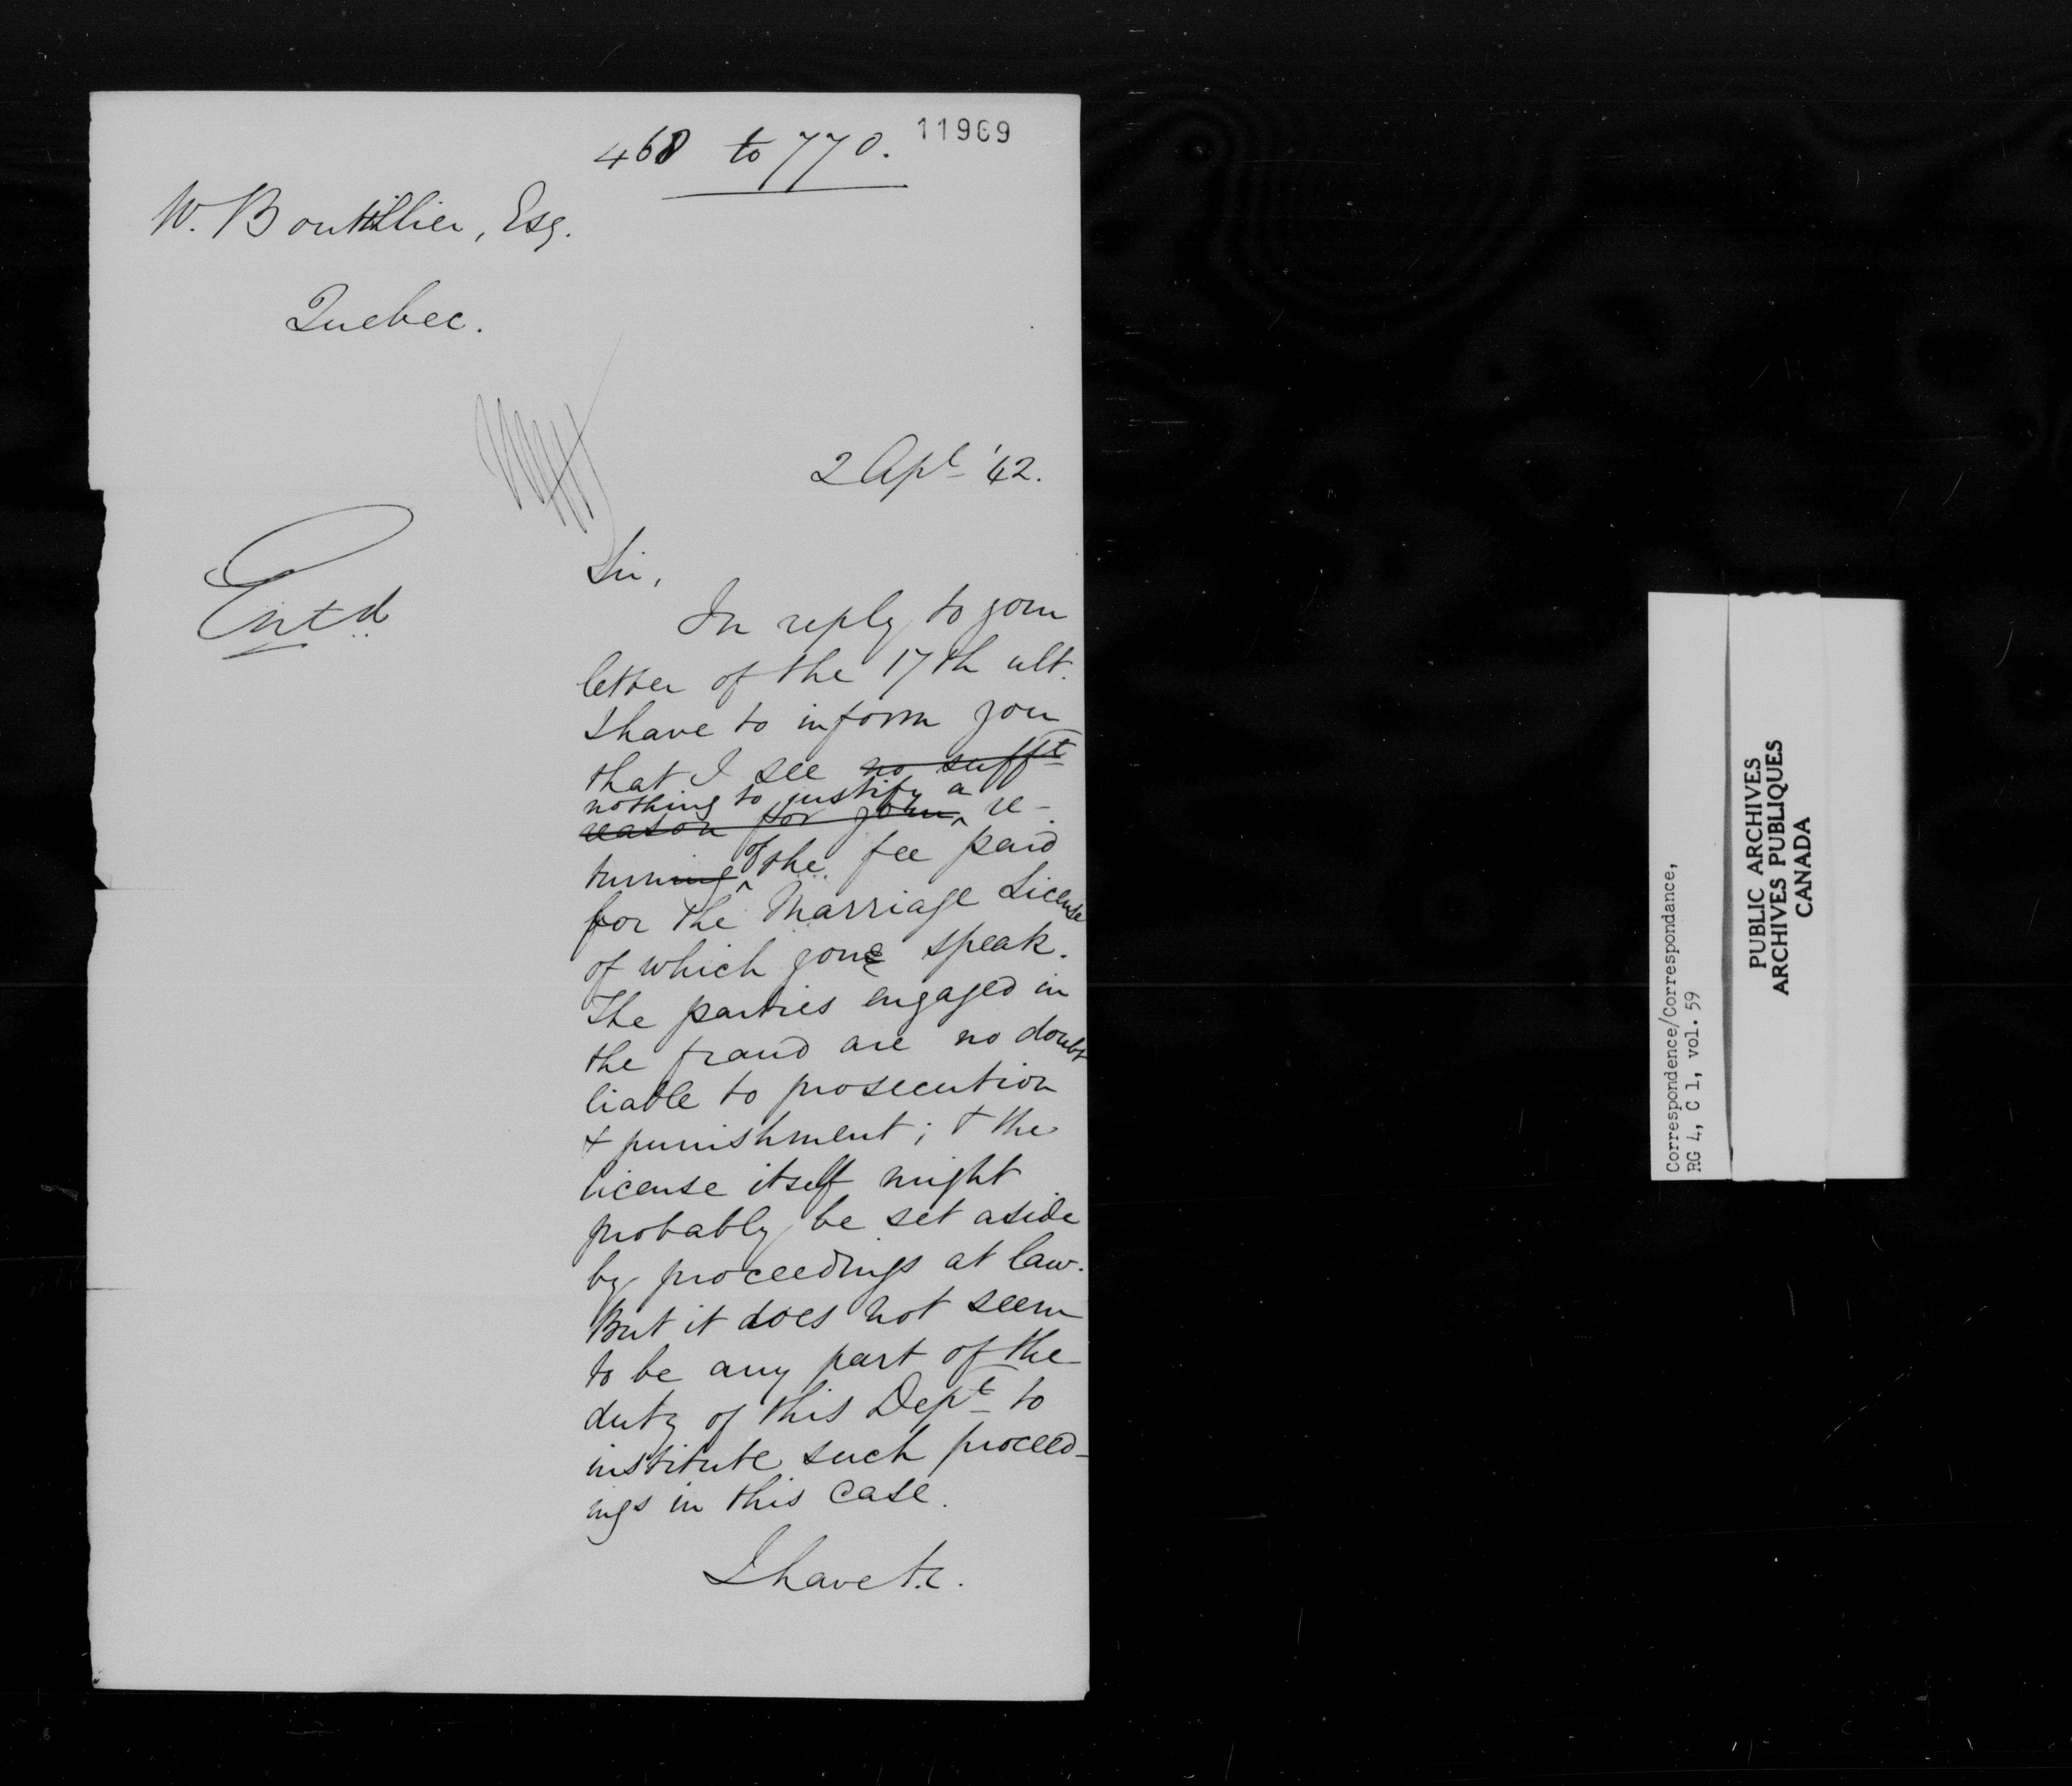 11969
468 to 770.
W. Boutillier, Esq.
Quebec.
2 Apl '42.
Entd
Sir,
In reply to your
letter of the 17th ult.
I have to inform you
that I see no sufft
nothing to justify a
reason for your re-
turning of the fee paid
for the Marriage License
of which you speak.
The parties engaged in
the fraud are no doubt
liable to prosecution
& punishment; & the
license itself might
probably be set aside
by proceedings at law.
But it does not seem
to be any part of the
duty of this Dept to
institute such proceed-
ings in this case.
I have &c.
Correspondence/Correspondance,
RG 4, C 1, vol. 59
PUBLIC ARCHIVES
ARCHIVES PUBLIQUES
CANADA